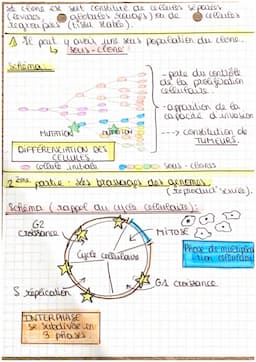 Le clone est soit constitué de cellules séparées
(levures, globules rouges) ou de cellules
regroupées (tissu solide).
⚠ Il peut y avoir une sous population du clone.
↳ "sous-clone".
Schéma:
- perte du contrôle
de la prolifération
cellulaire.
- apparition de la
capacité d'invasion
---> constitution de
TUMEURS.
MUTATION
MUTATION
DIFFÉRENCIATION DES
CELLULES
cellule initiale
sous-clones
2ème partie: Les brassages des génomes
(reproduct° sexuée).
Schéma (rappel du cycle cellulaire):
G2
croissance
MITOSE
Cycle cellulaire
Phase de multiplica
tion cellulaire
S réplication
G1 croissance
INTERPHASE
se subdivise en
3 phases.